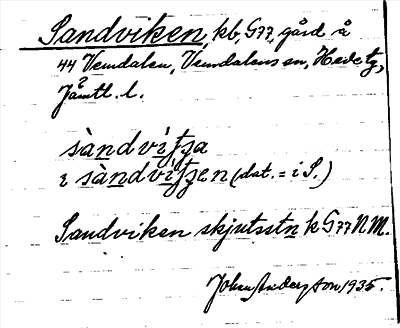 Sandviken, kb, G77, gård å
44 Vemdalen, Vemdalens sn, Hede tg,
Jämtl. l.
sàndvìʃʒa
i sàndvìʃʒen (dat. = i S.)
Sandviken skjutsstn k G77 N M.
Johan Anderson 1935.